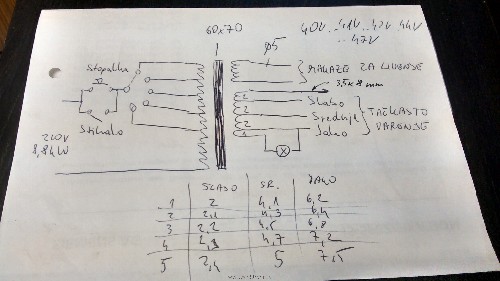 60x70
40V 41V 42V 44V
.. 47V
φ5
Stopalka
3,5 x 8 mm
Slabo
Srednje
Jako
TAČKASTO
VARENJE
220V
8,8 kW
Stikalo
X
SLABO SR. JAKO
1 2 4,1 6,2
2 2,1 4,3 6,4
3 2,2 4,5 6,8
4 4,7 7,2
5 2,4 5 7,5